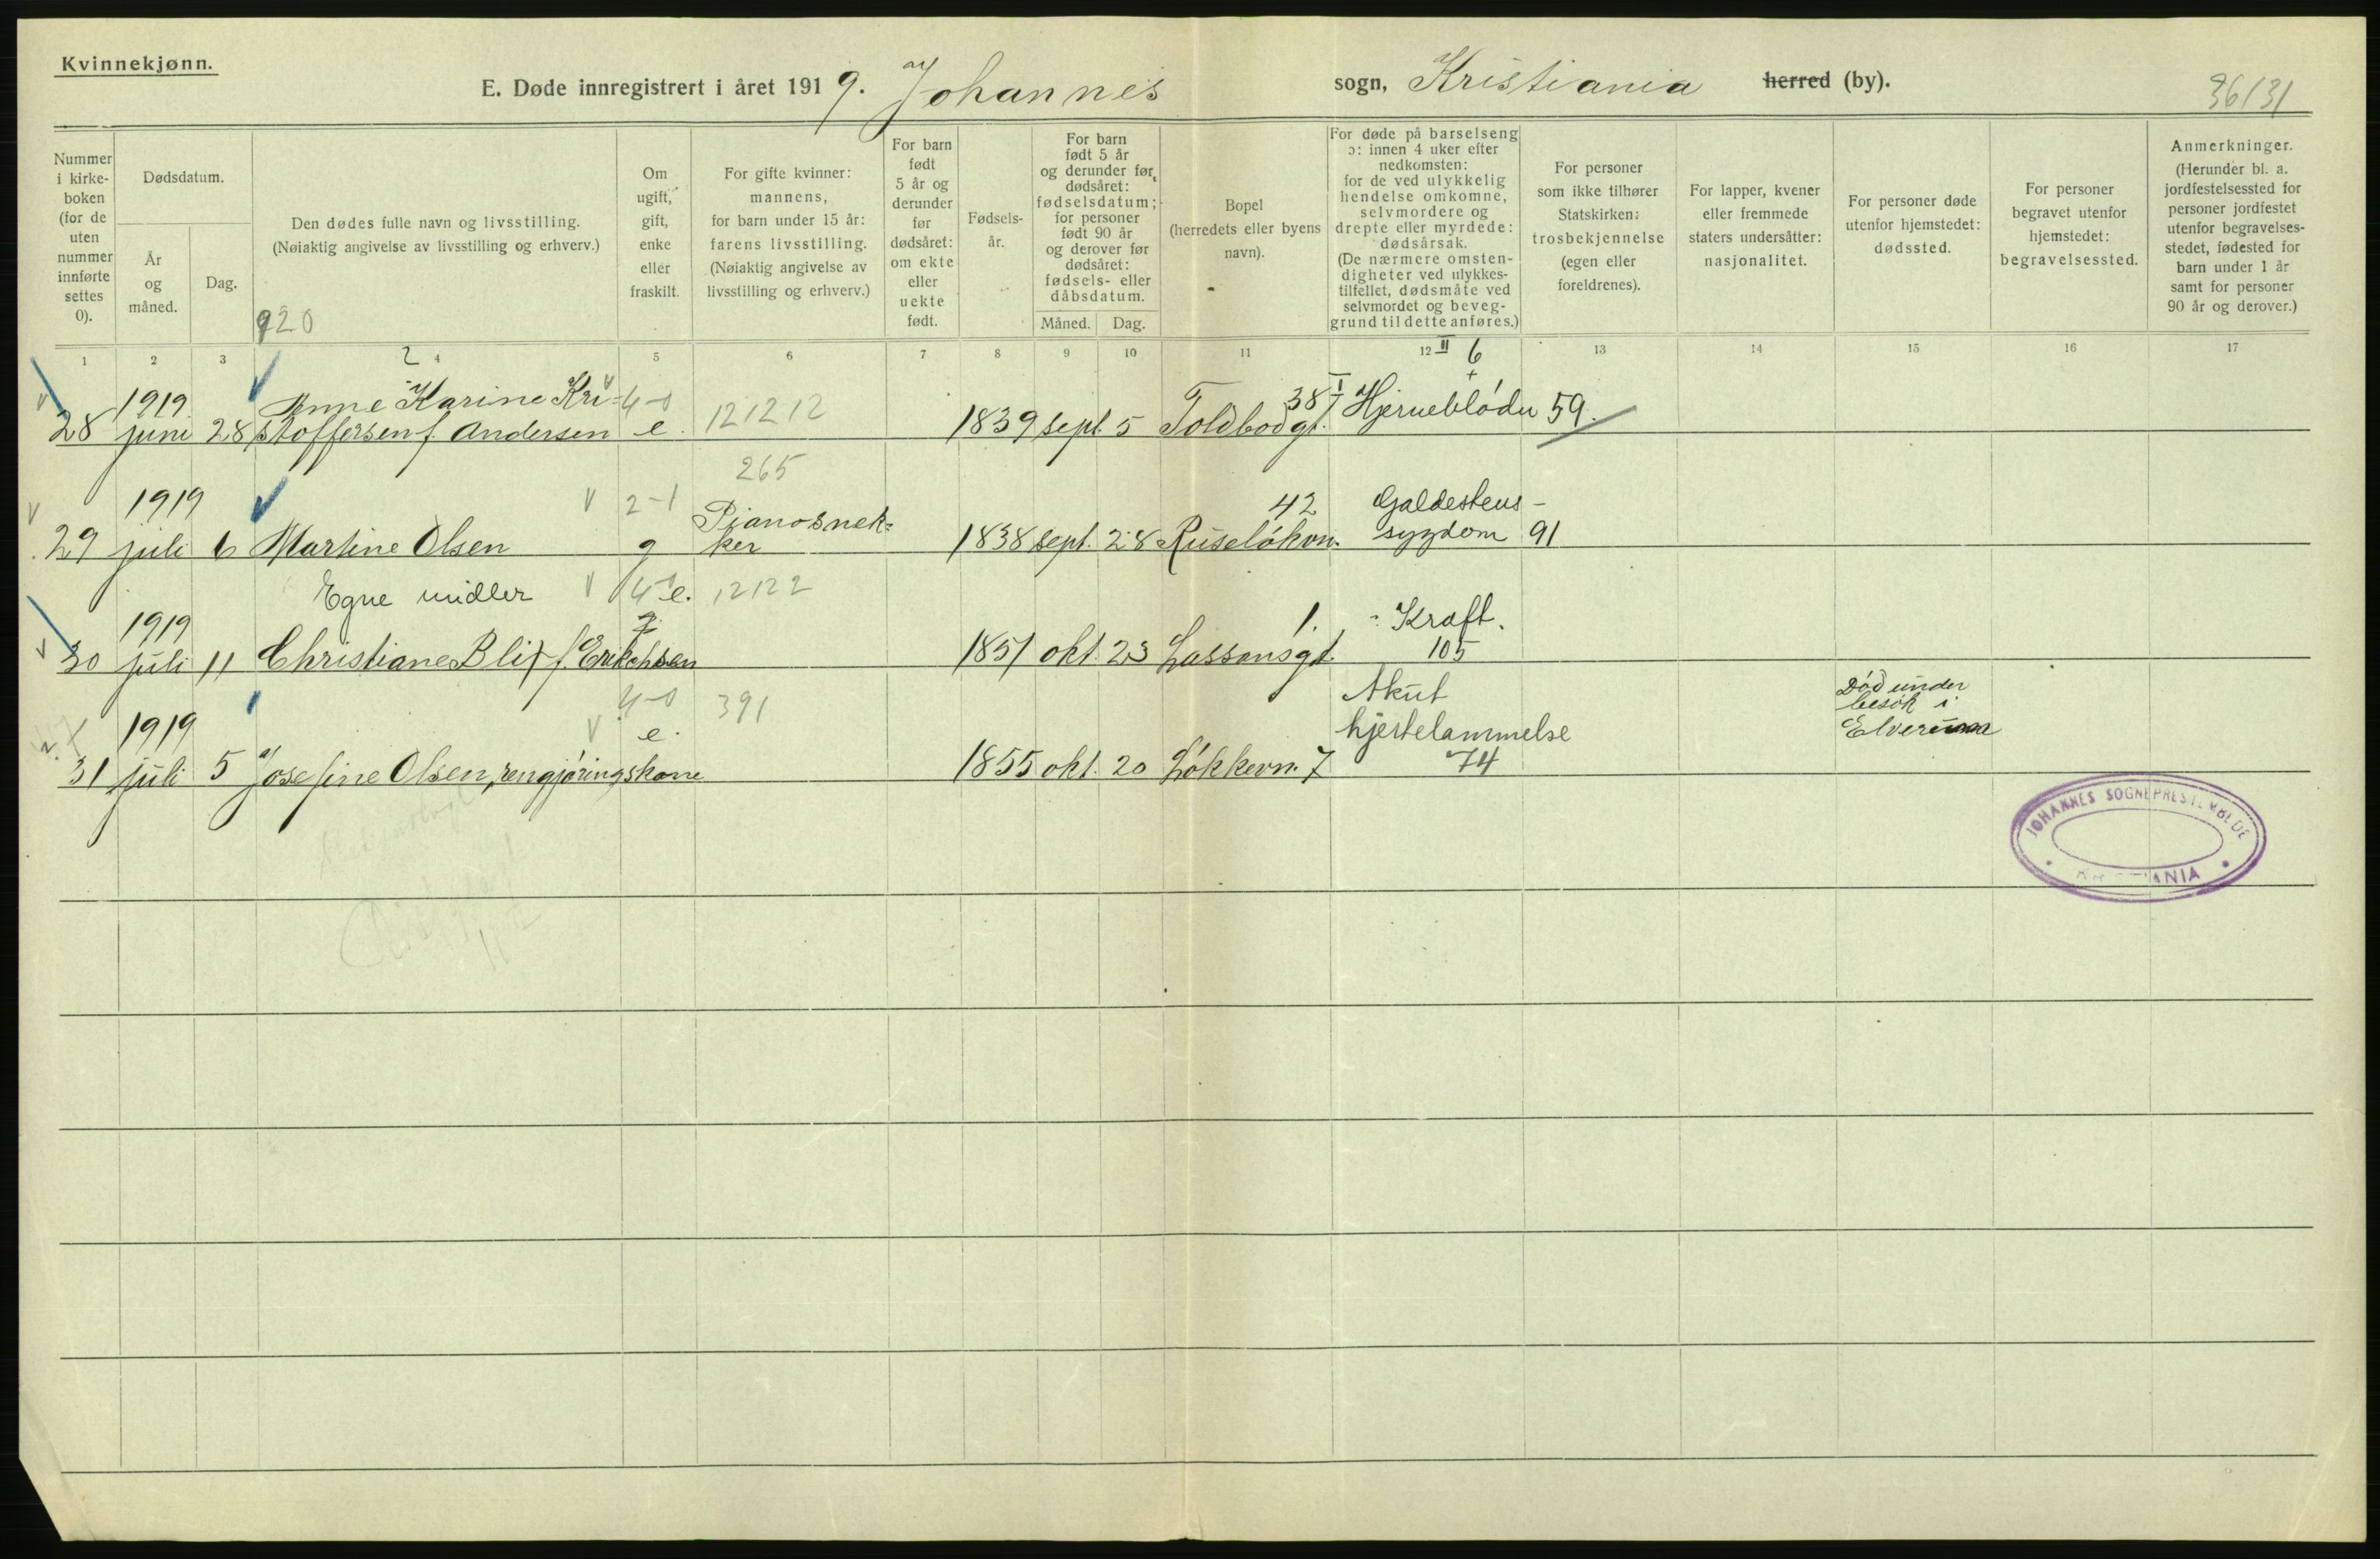 Kvinnekjønn.
E. Døde innregistrert i året 1919. Johannes sogn, Kristiania herred (by).
36/31
Nummer i kirke-boken (for de uten nummer innførte settes 0).
Dødsdatum.
År og måned.
Dag.
Den dødes fulle navn og livsstilling.
(Nøiaktig angivelse av livsstilling og erhverv.)
920
Om ugift, gift, enke eller fraskilt.
For gifte kvinner: mannens, for barn under 15 år: farens livsstilling. (Nøiaktig angivelse av livsstilling og erhverv.)
For barn født 5 år og derunder før dødsåret: om ekte eller uekte født.
Fødsels-år.
For barn født 5 år og derunder før dødsåret: fødselsdatum; for personer født 90 år og derover før dødsåret: fødsels- eller dåbsdatum.
Måned.
Dag.
Bopel (herredets eller byens navn).
For døde på barselseng ɔ: innen 4 uker efter nedkomsten: for de ved ulykkelig hendelse omkomne, selvmordere og drepte eller myrdede: dødsårsak. (De nærmere omsten-digheter ved ulykkes-tilfellet, dødsmåte ved selvmordet og beveg-grund til dette anføres.)
For personer som ikke tilhører Statskirken: trosbekjennelse (egen eller foreldrenes).
For lapper, kvener eller fremmede staters undersåtter: nasjonalitet.
For personer døde utenfor hjemstedet: dødssted.
For personer begravet utenfor hjemstedet: begravelsessted.
Anmerkninger. (Herunder bl. a. jordfestelsessted for personer jordfestet utenfor begravelses-stedet, fødested for barn under 1 år samt for personer 90 år og derover.)
1 2 3 2 4 5 6 7 8 9 10 11 12 II 6 13 14 15 16 17
1919 Anne Karine Kri= 4-0 121212 38 I
28 juni 28 stoffersen f. Andersen e. 1839 sept. 5 Toldbodgt. Hjerneblödn 59.
265
1919 2-1 Pianosnek= 42 Galdestens-
29 juli 6 Martine Olsen g ker 1838 sept. 28 Ruseløkvn. sygdom 91
Egne midler 4 e. 12122
1919 1. Kræft.
30 juli 11 Christiane Blix f. Erichsen 1851 okt. 23 Lassonsgt. 105
4-0 391 Akut Död under
besök i
1919 e. hjertelammelse Elverum
31 juli 5 Josefine Olsen, rengjøringskone 1855 okt. 20 Løkkevn. 7 74
JOHANNES SOGNEPRESTEMBEDE
KRISTIANIA